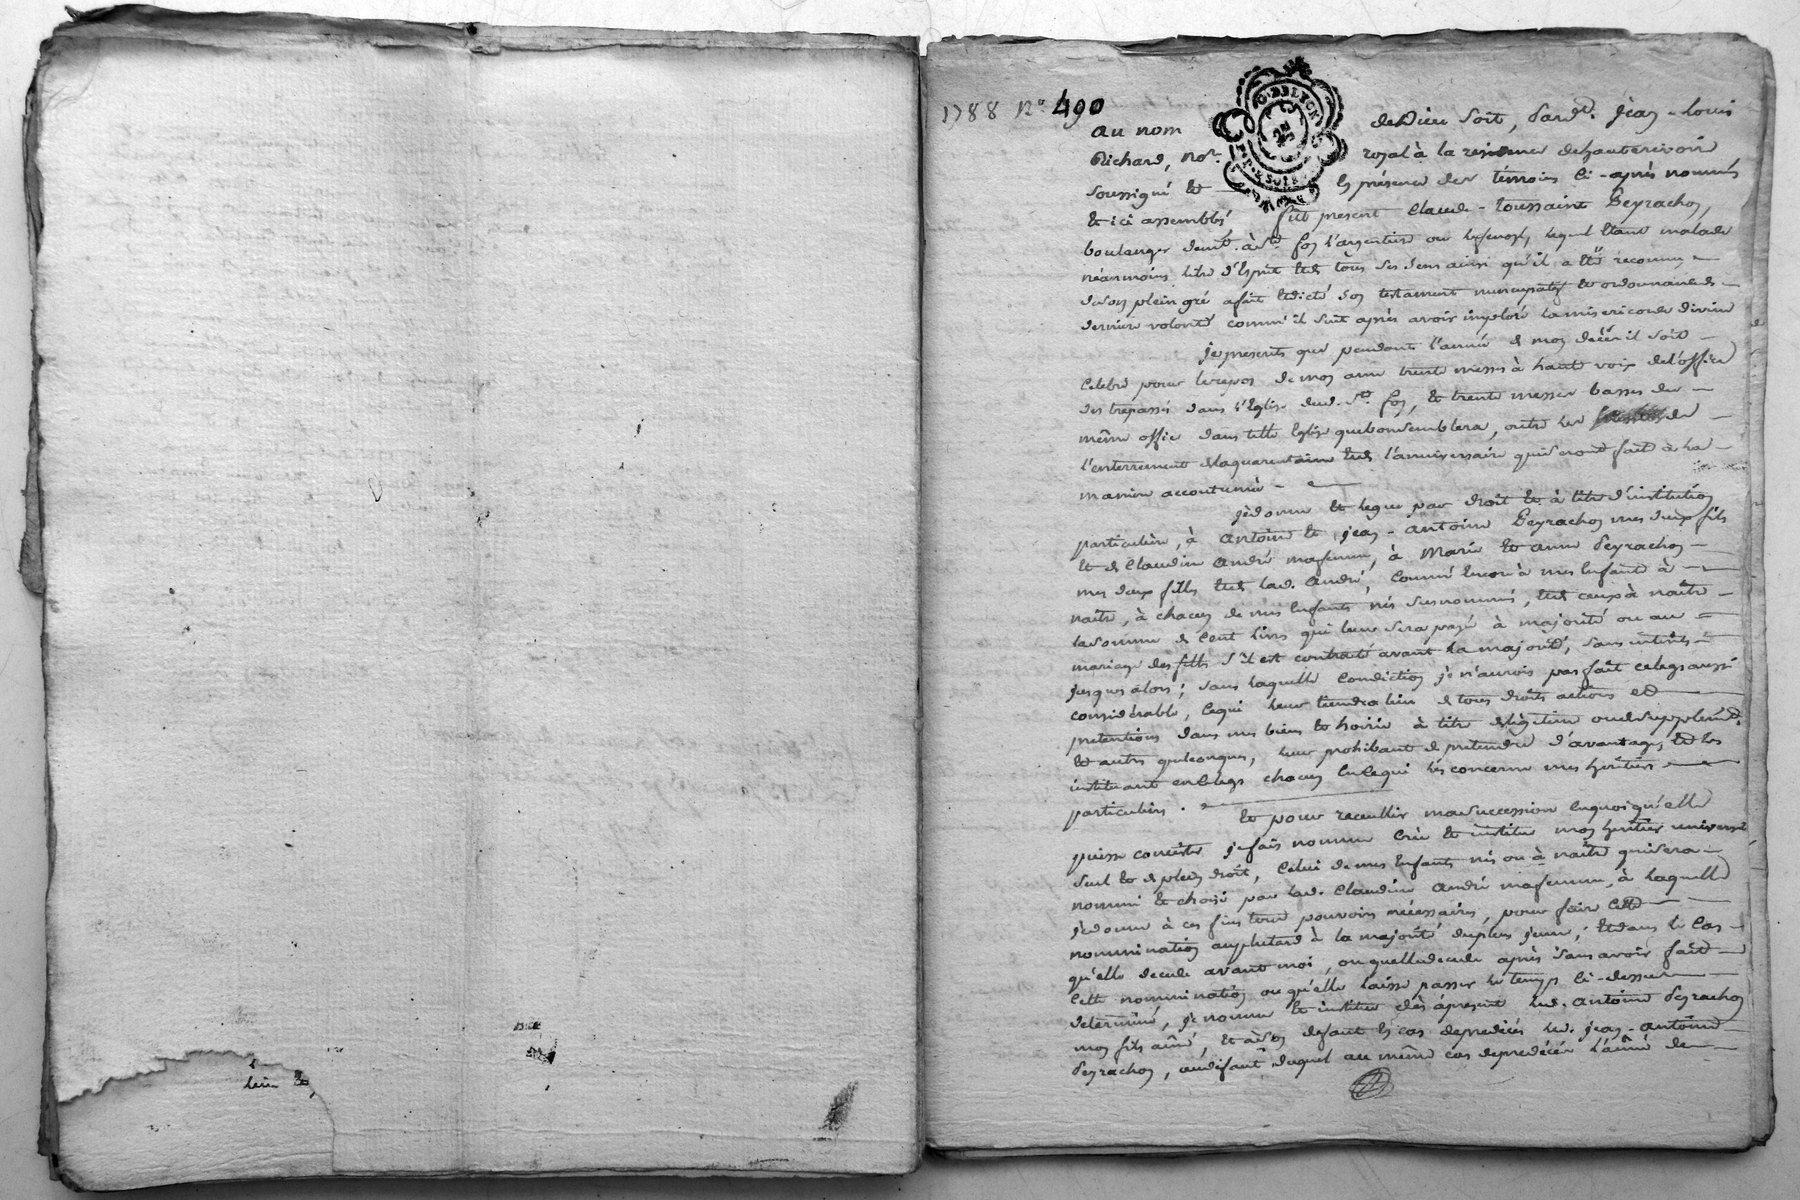 1788 N.º 490
au nom de Dieu soit, pard.t jean-louis
Richard, not.re royal à la residence dehauterivoire
soussigné et en présence des témoins ci-après nommés
et ici assemblés, fut present Claude-Toussaint Peyrachon,
boulanger dem.t à s.te foy l'argentiere lequel étant malade
néanmoins libre d'Esprit et de tous ses sens ainsi qu'il a été reconnu,
deson plein gré afait et dicté son testament nuncupatif et ordonnance de
derniere volonté comm'il suit après avoir imploré lamisericorde divine
je que pendant l'année de mon décès il soit
celebré pour lerepos de mon ame trente messes à haute voix del'office
des trepassés dans l'Eglise dud. S.te foy, et trente messes basses du
même office dans telle Eglise quebonsemblera, outre les de
l'enterrement delaquarantaine et de l'anniversaire quiseront fait à la
maniere accoutumée
jedonne et legue par droit et à titre d'institution
particuliere, à antoine et jean-antoine Peyrachon mes deux fils
et de Claudine andré mafemme, à Marie et anne Peyrachon
mes deux filles et de lad. andré, comme encore à mes Enfants à
naitre, à chacun de mes Enfants nés susnommés, et de ceux à naitre
lasomme de cent livres qui leur sera payé à majorité ou au
mariage des filles s'il est contracté avant la majorité, sans intérêts
jusques alors; sans laquelle condiction je n'aurois pas fait celegs aussi
considérable, cequi leur tiendra lieu de tous droits actions et
pretentions dans mes biens et hoirie à titre delégitime oudesupplém.t
et autres quelconques, leur prohibant de pretendre d'avantage, et les
instituant chacun encequi les concerne mes heritiers
particuliers.
Et pour recueillir masuccession enquoi qu'elle
puisse concister jefais nomme crée et institue mon heritier universel
seul et de plein droit, celui demes Enfants nés ou à naitre quisera
nommé et choisi par lad. Claudine andré mafemme, à laquelle
jedonne à ces fins tout pouvoirs nécessaires, pour faire cette
nomination auplustard à la majorité duplus jeune; Etdans le cas
qu'elle decede avant moi, ouquelledecede après sans avoir fait
cette nomination ouqu'elle laisse passer le temps ci-dessus
determiné, je nomme et institue dès àpresent led. antoine Peyrachon
mon fils aîné, et àson defaut en cas deprédécès led. jean-antoine
Peyrachon, audéfaut duquel au même cas deprédécès l'aîné de